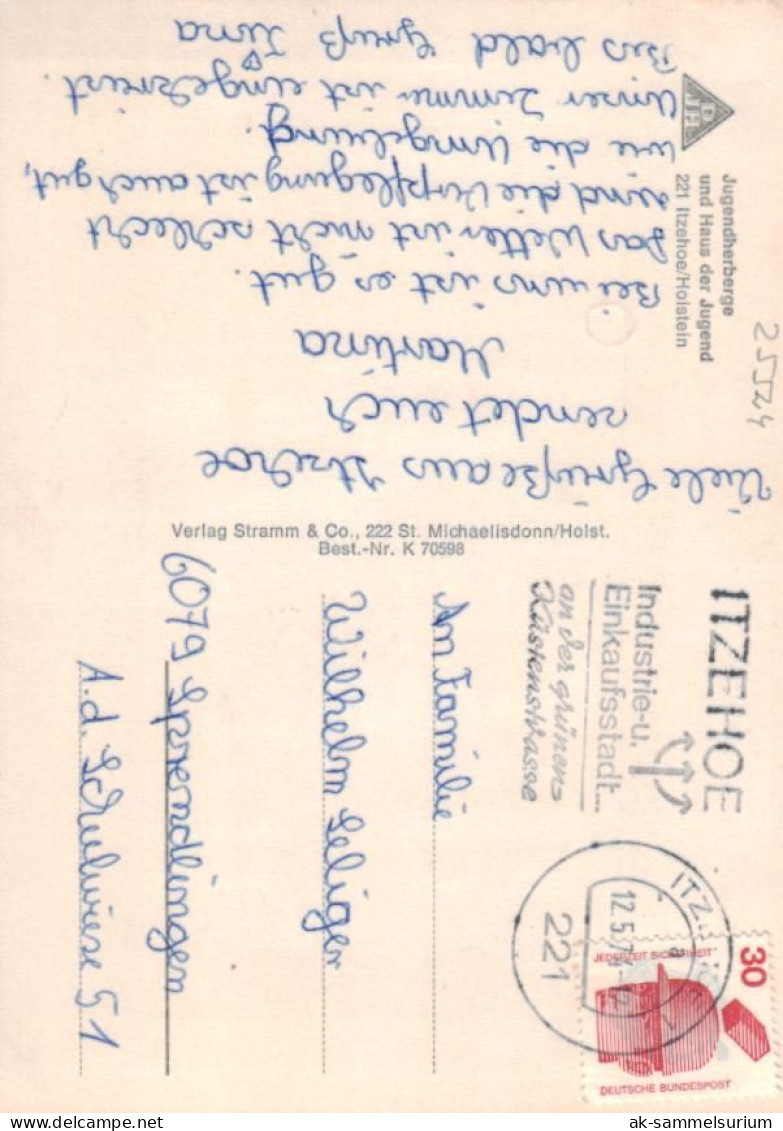 Jugendherberge
und Haus der Jugend
221 Itzehoe/Holstein
DJH
25524
Viele Grüße aus Itzehoe
sendet euch
Martina
Bei uns ist es gut.
Das Wetter ist nicht schlecht
und die Verpflegung ist auch gut,
wie die Umgebung.
Unser Zimmer ist
Bis bald Gruß Tina
Verlag Stramm & Co., 222 St. Michaelisdonn/Holst.
Best.-Nr. K 70598
ITZEHOE
Industrie-u.
Einkaufsstadt...
an der grünen
Küstenstrasse
221
12.5.7
30
JEDERZEIT SICHERHEIT
DEUTSCHE BUNDESPOST
An Familie
Wilhelm Seliger
6079 Sprendlingen
A.d. Schulwiese 51
ak-sammelsurium